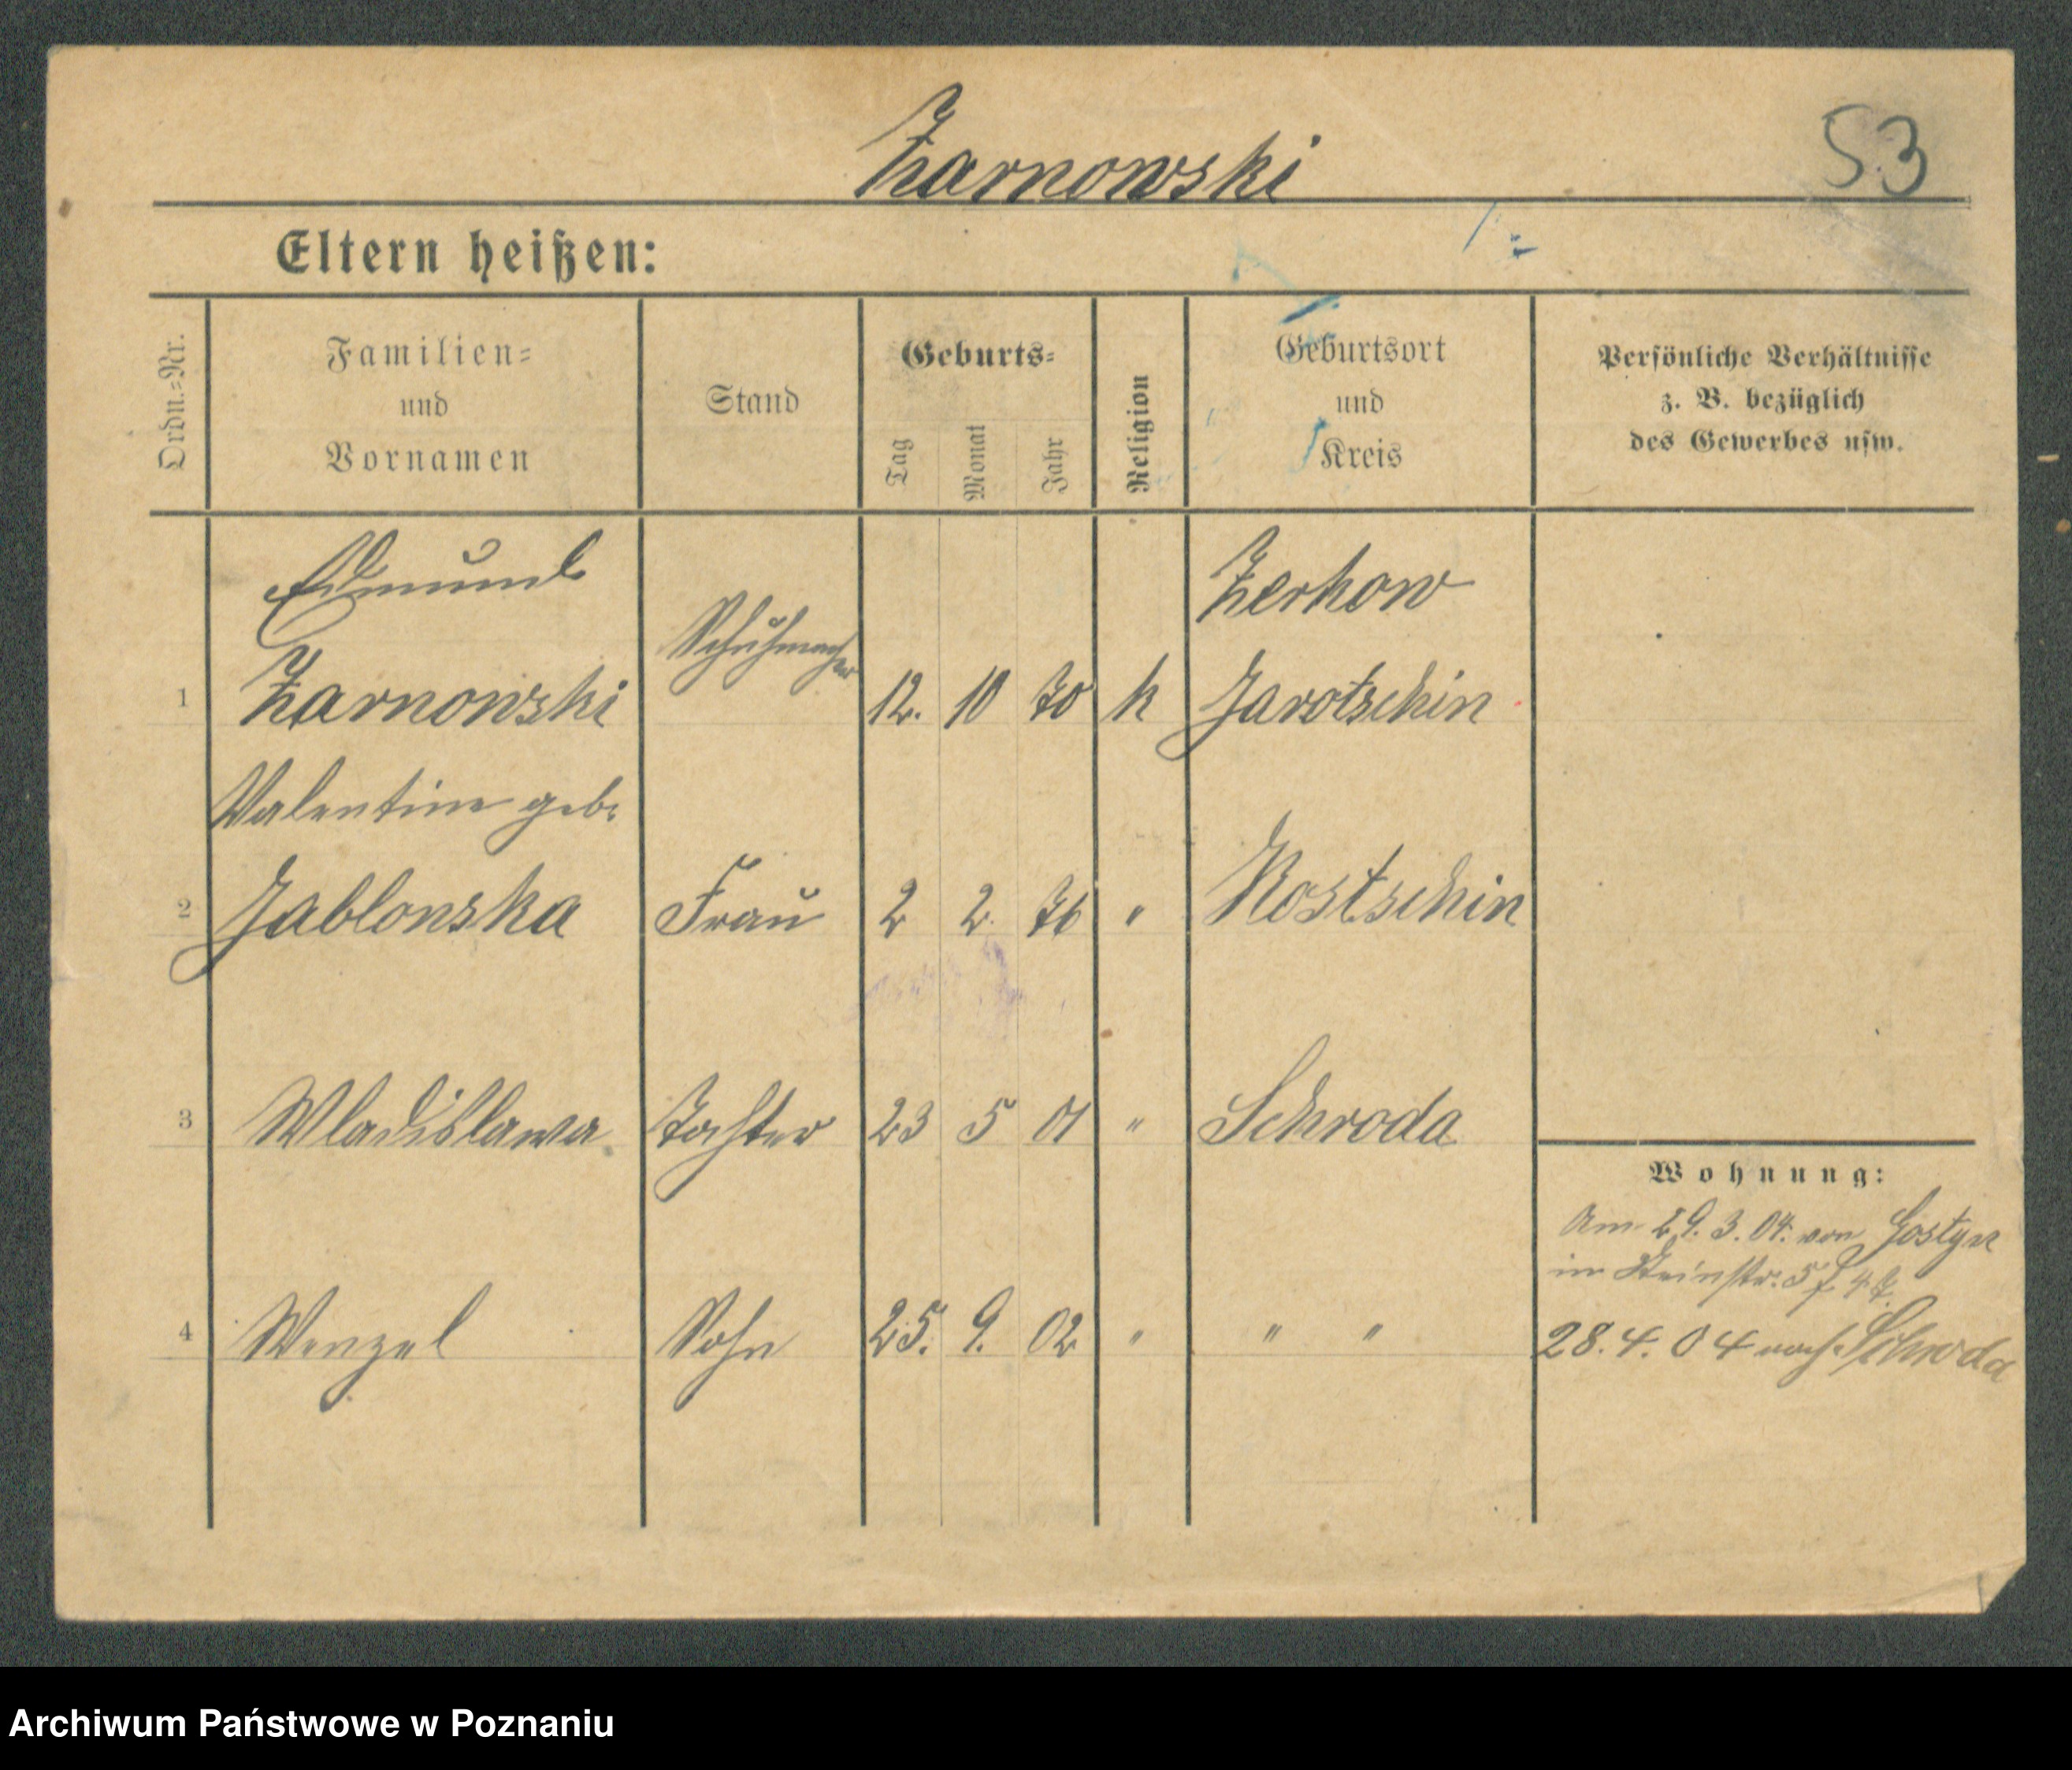 Żarnowski
53
Eltern heißen:
Ordn.=Nr.
Familien=
und
Vornamen
Stand
Geburts=
Tag
Monat
Jahr
Religion
Geburtsort
und
Kreis
Persönliche Verhältnisse
z. B. bezüglich
des Gewerbes usw.
Edmund
1 Żarnowski Schuhmacher 12. 10 70 k Zerkow
Jarotschin
Valentine geb.
2 Jablonska Frau 2 2. 76 " Kostschin
3 Wladislawa. Tochter 23 5 01 " Schroda
4 Wenzel Sohn 25. 9. 02 " " "
Wohnung:
Am 29. 3. 04. von Gostyn
in
28. 4. 04 nach Schroda
Archiwum Państwowe w Poznaniu